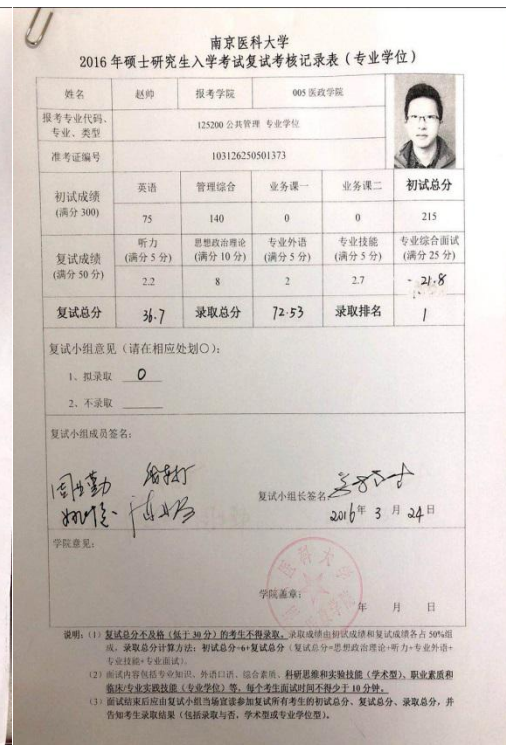 南京医科大学
2016 年硕士研究生入学考试复试考核记录表（专业学位）
姓名 赵帅 报考学院 005 医政学院
报考专业代码、专业、类型 125200 公共管理 专业学位
准考证编号 103126250501373
初试成绩（满分 300） 英语 管理综合 业务课一 业务课二 初试总分
75 140 0 0 215
复试成绩（满分 50 分） 听力（满分 5 分） 思想政治理论（满分 10 分） 专业外语（满分 5 分） 专业技能（满分 5 分） 专业综合面试（满分 25 分）
2.2 8 2 2.7 21.8
复试总分 36.7 录取总分 72.53 录取排名 1
复试小组意见（请在相应处划○）：
1、拟录取 O
2、不录取
复试小组成员签名：
复试小组长签名
2016 年 3 月 24 日
学院意见：
学院盖章：
年 月 日
说明：（1）复试总分不及格（低于 30 分）的考生不得录取。录取成绩由初试成绩和复试成绩各占 50%组
成。录取总分计算方法：初试总分÷6+复试总分（复试总分=思想政治理论+听力+专业外语+
专业技能+专业面试）。
（2）面试内容包括专业知识、外语口语、综合素质、科研思维和实验技能（学术型）、职业素质和
临床/专业实践技能（专业学位）等，每个考生面试时间不得少于 10 分钟。
（3）面试结束后应由复试小组当场宣读参加复试所有考生的初试总分、复试总分、录取总分，并
告知考生录取结果（包括录取与否，学术型或专业学位型）。